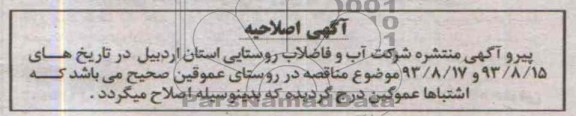 آگهی اصلاحیه
پیرو آگهی منتشره شرکت آب و فاضلاب روستایی استان اردبیل در تاریخ های
۹۳/۸/۱۵ و ۹۳/۸/۱۷ موضوع مناقصه در روستای عموقین صحیح می باشد که
اشتباها عموگین درج گردیده که بدینوسیله اصلاح میگردد .
ParsNamadData